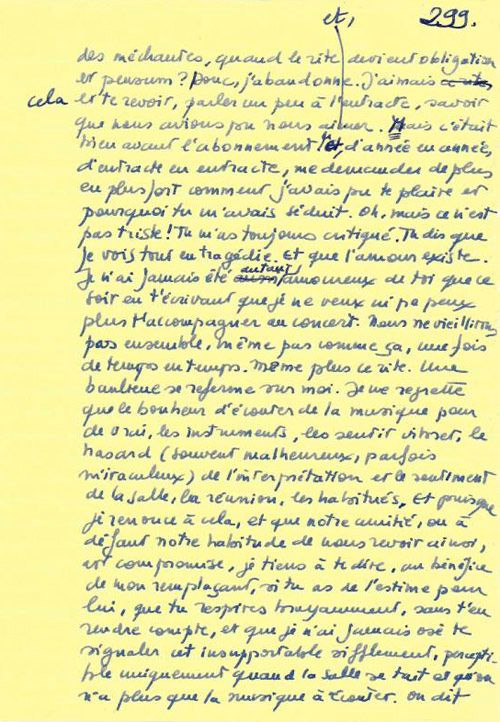 et, 299.
des méchantes, quand le rite devient obligation
et pensum? Donc, j'abandonne. J'aimais ce rite,
cela et te revoir, parler un peu à l'entracte, savoir
que nous avions pu nous aimer. Mais c'était
bien avant l'abonnement! et, d'année en année,
d'entracte en entracte, me demander de plus
en plus fort comment j'avais pu te plaire et
pourquoi tu m'avais séduit. Oh, mais ce n'est
pas triste! Tu m'as toujours critiqué. Tu dis que
je vois tout en tragédie. Et que l'amour existe.
Je n'ai jamais été autant amoureux de toi que ce
soir en t'écrivant que je ne veux ni ne peux
plus t'accompagner au concert. Nous ne vieillirons
pas ensemble, même pas comme ça, une fois
de temps en temps. Même plus ce rite. Une
banlieue se referme sur moi. Je ne regrette
que le bonheur d'écouter de la musique pour
de vrai, les instruments, les sentir vibrer, le
hasard (souvent malheureux, parfois
miraculeux) de l'interprétation et le sentiment
de la salle, la réunion, les habitués. Et puisque
je renonce à cela, et que notre amitié, ou à
défaut notre habitude de nous revoir ainsi,
est compromise, je tiens à te dire, au bénéfice
de mon remplaçant, si tu as de l'estime pour
lui, que tu respires bruyamment, sans t'en
rendre compte, et que je n'ai jamais osé te
signaler cet insupportable sifflement, percepti-
ble uniquement quand la salle se tait et qu'on
n'a plus que la musique à écouter. On dit